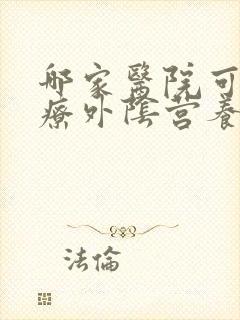 邮家醫院可
療外陰营養
法倫